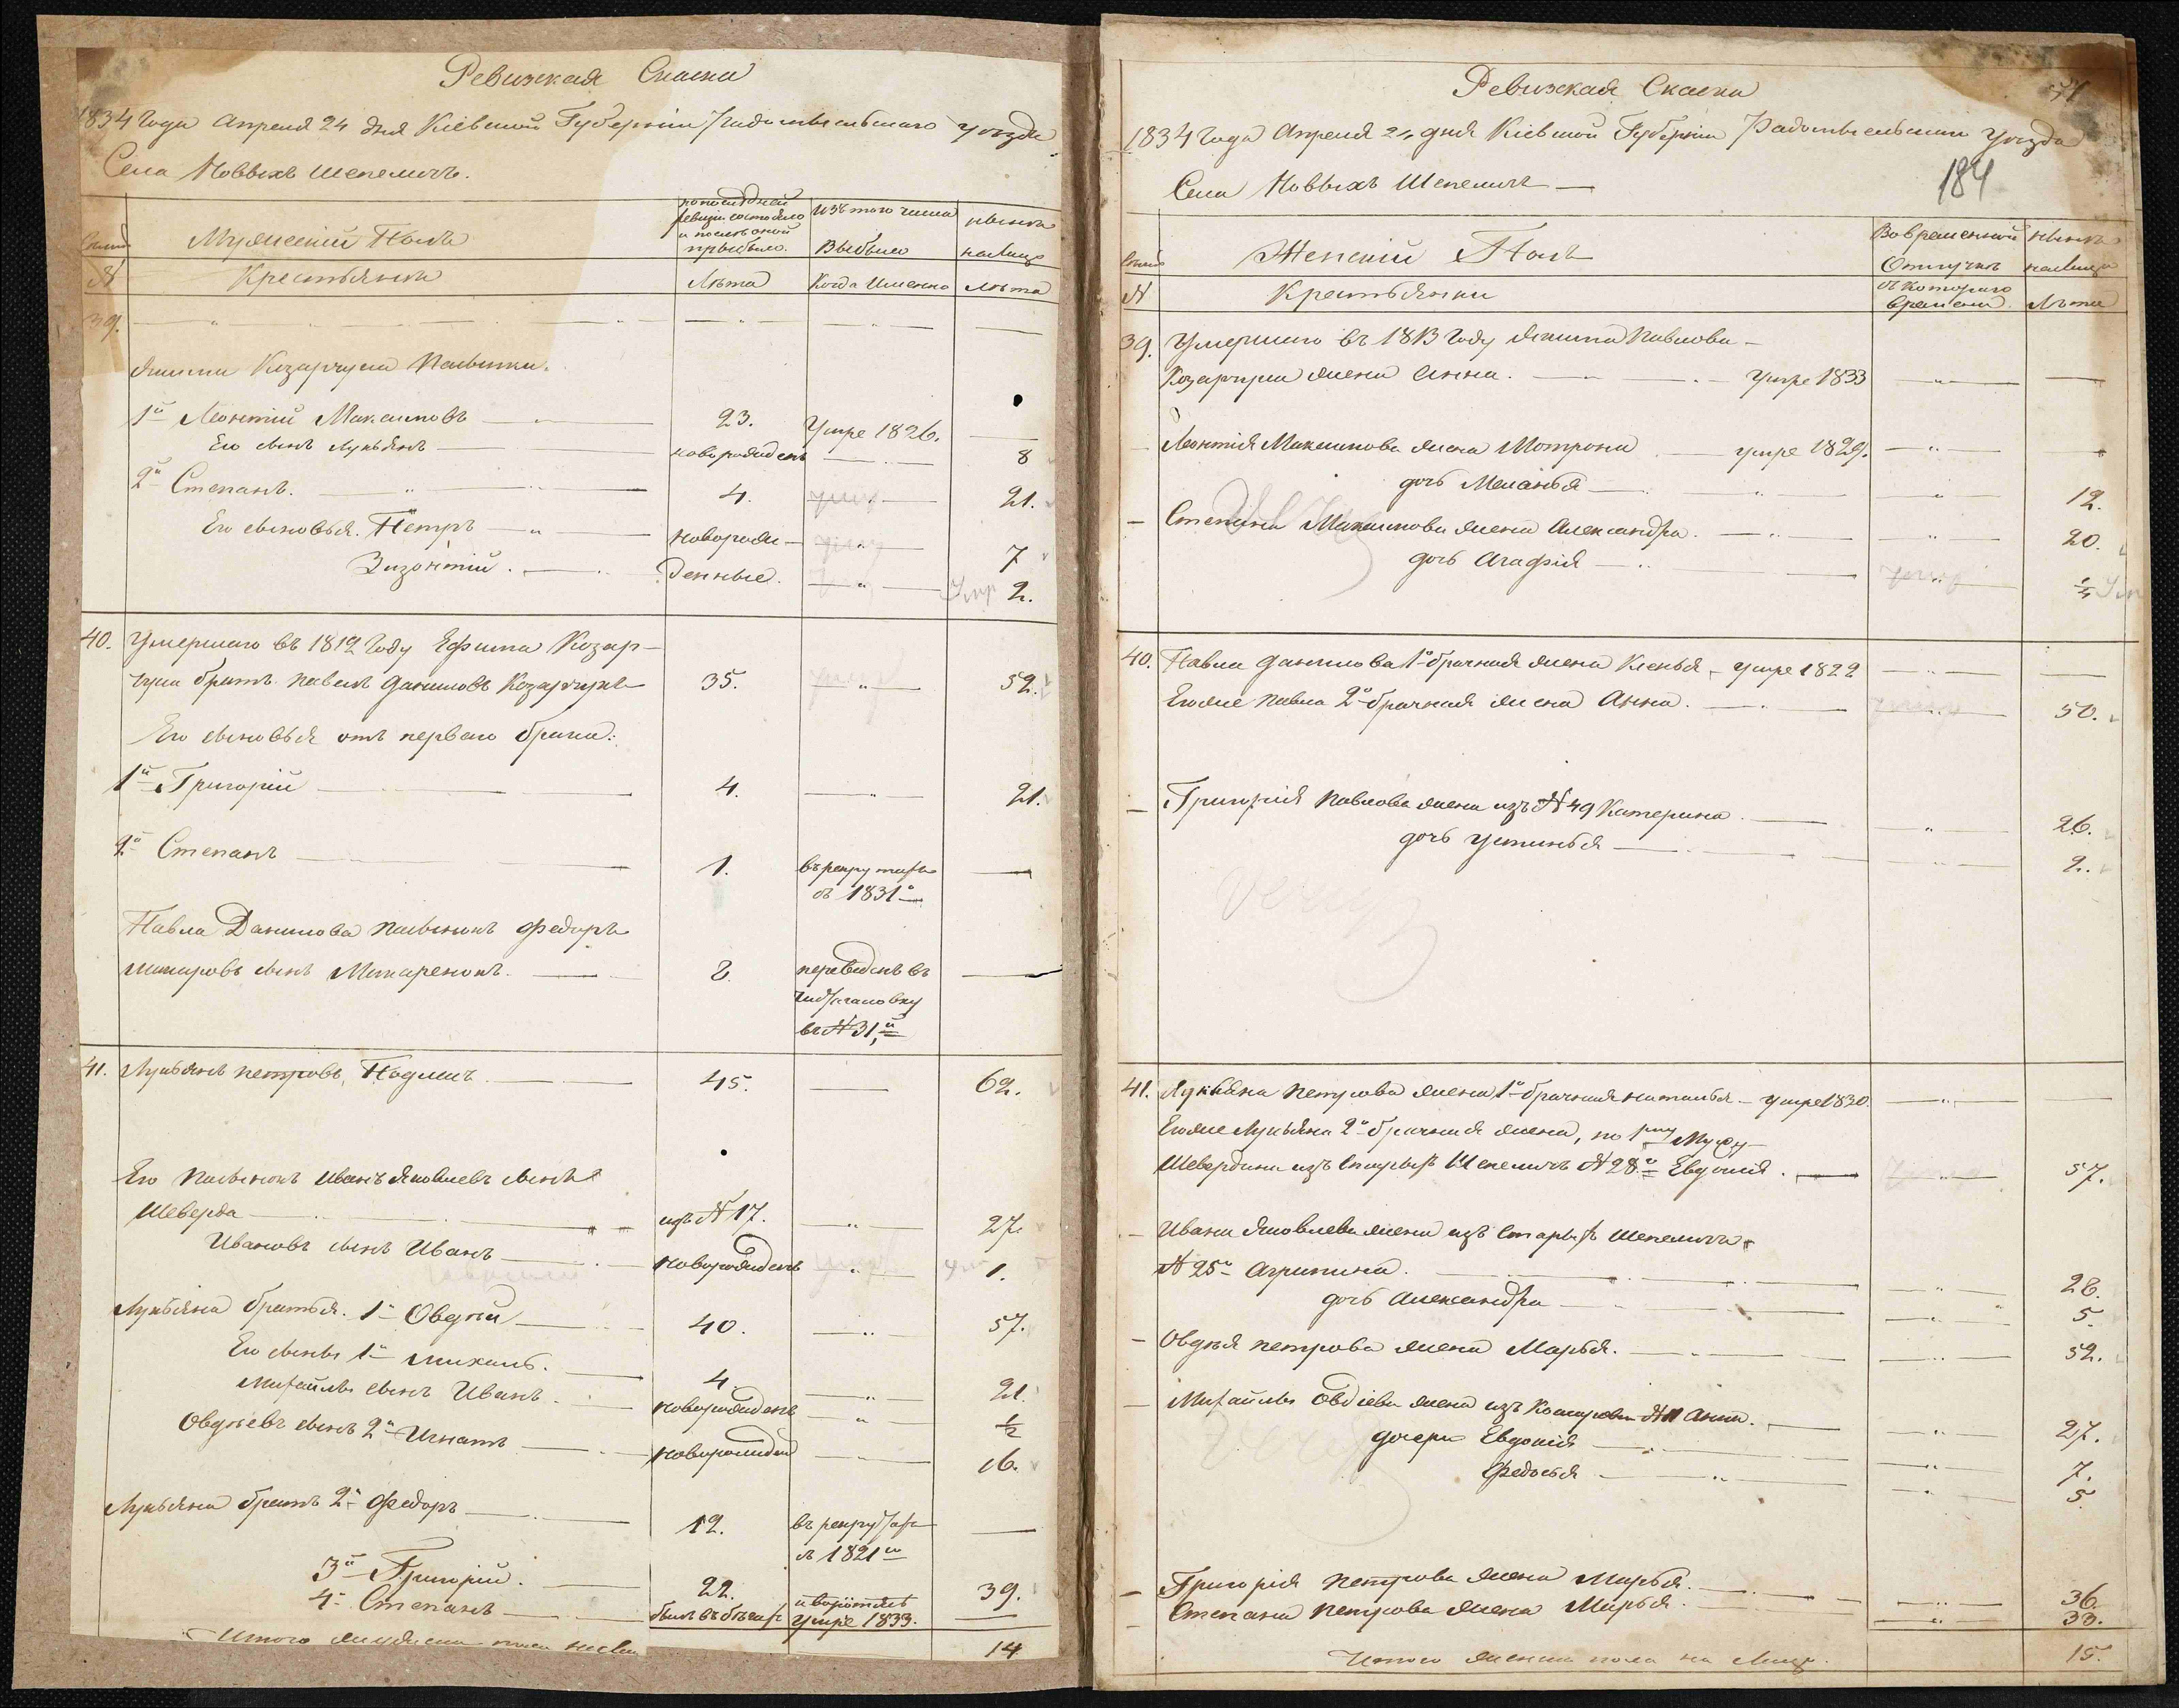 Ревизская Сказка
1834 Года Апреля 24 дня Кіевской Губерніи Радомысльскаго уезда
Села Новыхъ Шепеличь.
по последней
ревизіи состояло
и после оной
прибыло.
Изъ того числа
Выбыло
ныне
налицо
Мужескій Полъ
№
Крестьяни
Лета
Когда Именно
Лета
39.
Якима Козарчука Пасынки.
1й Леонтій Максимовъ 23. Умре 1826.
Его сынъ Лукьянъ новорожденъ 8
2й Степанъ. 4. 21.
Его сыновья. Петръ новорож- 7
Зизонтій. денные. 2.
40. Умершаго въ 1812 Году Ефима Козар-
чука братъ Павелъ Даниловъ Козарчукъ 35. 52.
Его сыновья отъ перваго брака:
1й Григорій 4. 21.
2й Степанъ 1. въ рекрутахъ
съ 1831
Павла Данилова Пасынокъ Федоръ
Макаровъ сынъ Макаренокъ. 2. переведенъ въ
въ № 31й
41. Лукьянъ Петровъ 45. 62.
Его Пасынокъ Иванъ Яковлевъ сынъ
Шеверда изъ № 17. 27.
Ивановъ сынъ Иванъ новорожденъ 1.
Лукьяна братья. 1й Овдей 40. 57.
Его сынъ 1й Михаилъ. 4 21.
Михайлы сынъ Иванъ. новорожденъ ½
Овдеевъ сынъ 2й Игнатъ новорожден 16.
Лукьяна братъ 2й Федоръ 12. въ рекрутахъ
съ 1821
3й Григорій. 22. 39.
4й Степанъ былъ въ бегахъ
умре 1833.
Итого мужеска пола на лицо 14
Ревизская Сказка
1834 Года Апреля 24 дня Кіевской Губерніи Радомысльскаго уезда
184
Села Новыхъ Шепеличь
Женскій Полъ
Во временной
Отлучке
ныне
налицо
№
Крестьянки
съ котораго
времени
Лета
39. Умершаго въ 1813 Году Якима Павлова
Козарчука жена Анна. Умре 1833
Леонтія Максимова жена Мотрона умре 1829.
дочь Меланья 12.
Степана Максимова жена Александра. 20.
дочь Агафія
40. Павла Данилова 1-брачная жена Ксенья умре 1822
Егоже Павла 2-брачная жена Анна. 50.
Григорія Павлова жена изъ № 49 Катерина 26.
дочь Устинья 2.
41. Лукьяна Петрова жена 1-брачная Наталья умре 1830.
Егоже Лукьяна 2-брачная жена, по 1му Мужу
Шевердина изъ Старыхъ Шепеличь № 28 Евдокія. 57.
Ивана Яковлева жена изъ Старыхъ Шепеличь
№ 25 Агрипина. 28.
дочь Александра 5.
Овдея Петрова жена Марья. 52.
Михайлы Овдіева жена изъ № 11 Анна. 27.
дочери Евдокія 7.
Федосья 5.
Григорія Петрова жена Марья. 36.
Степана Петрова жена Марья. 33.
Итого женска пола на лицо. 15.